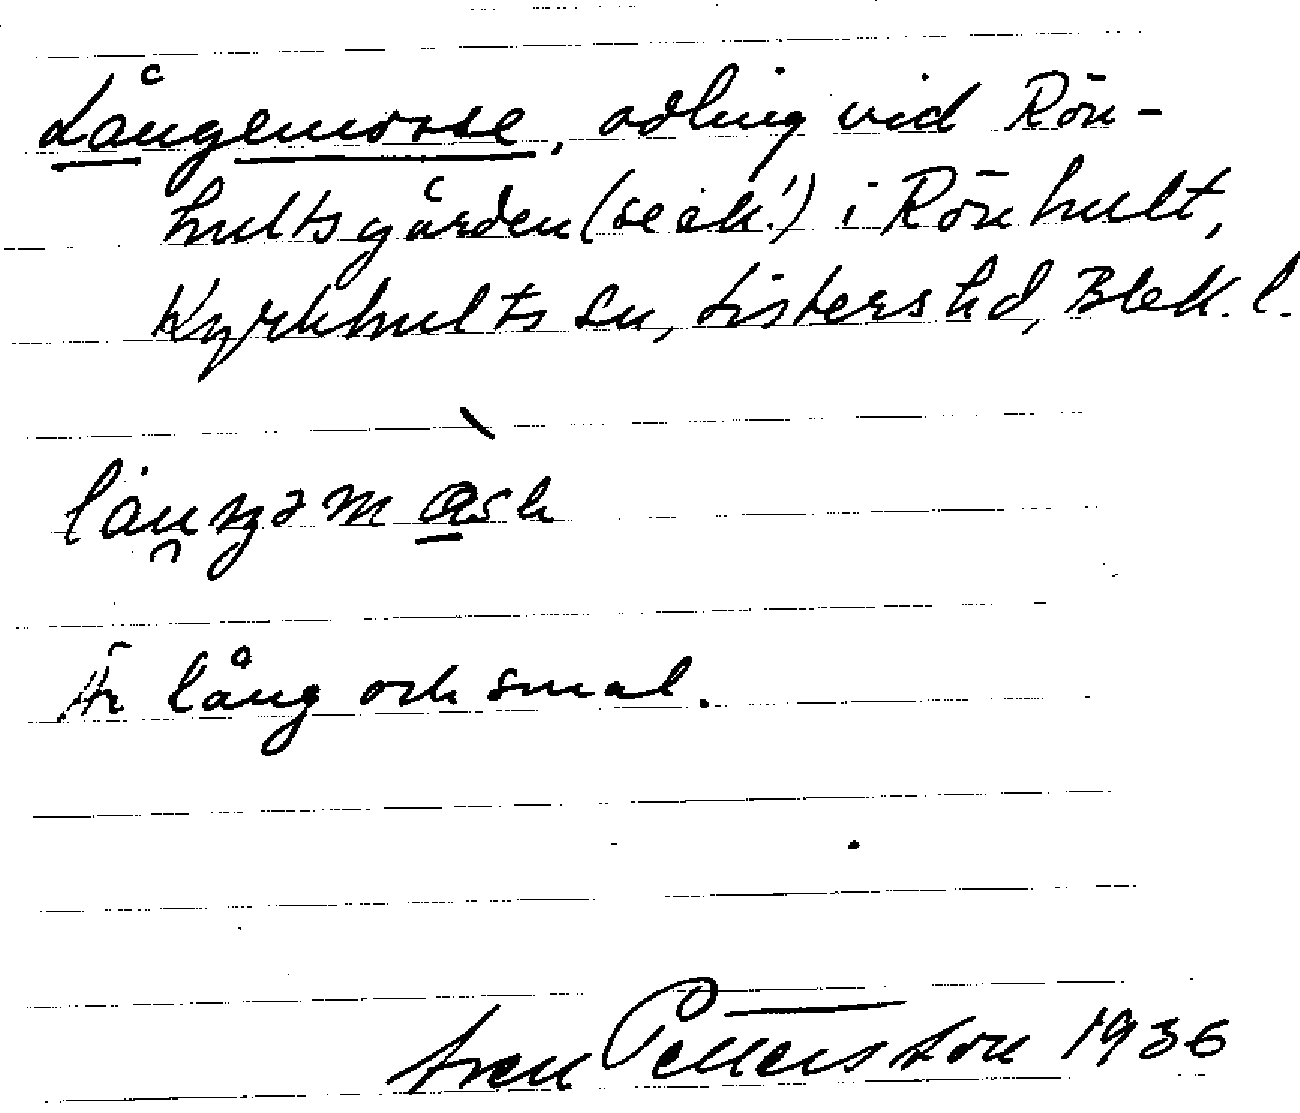 Långemosse, odling vid Rön-
hultsgården (se ek!) i Rönhult,
Kyrkhults sn, Listers hd, Blek. l.
Är lång och smal.
Sven Petterson 1936